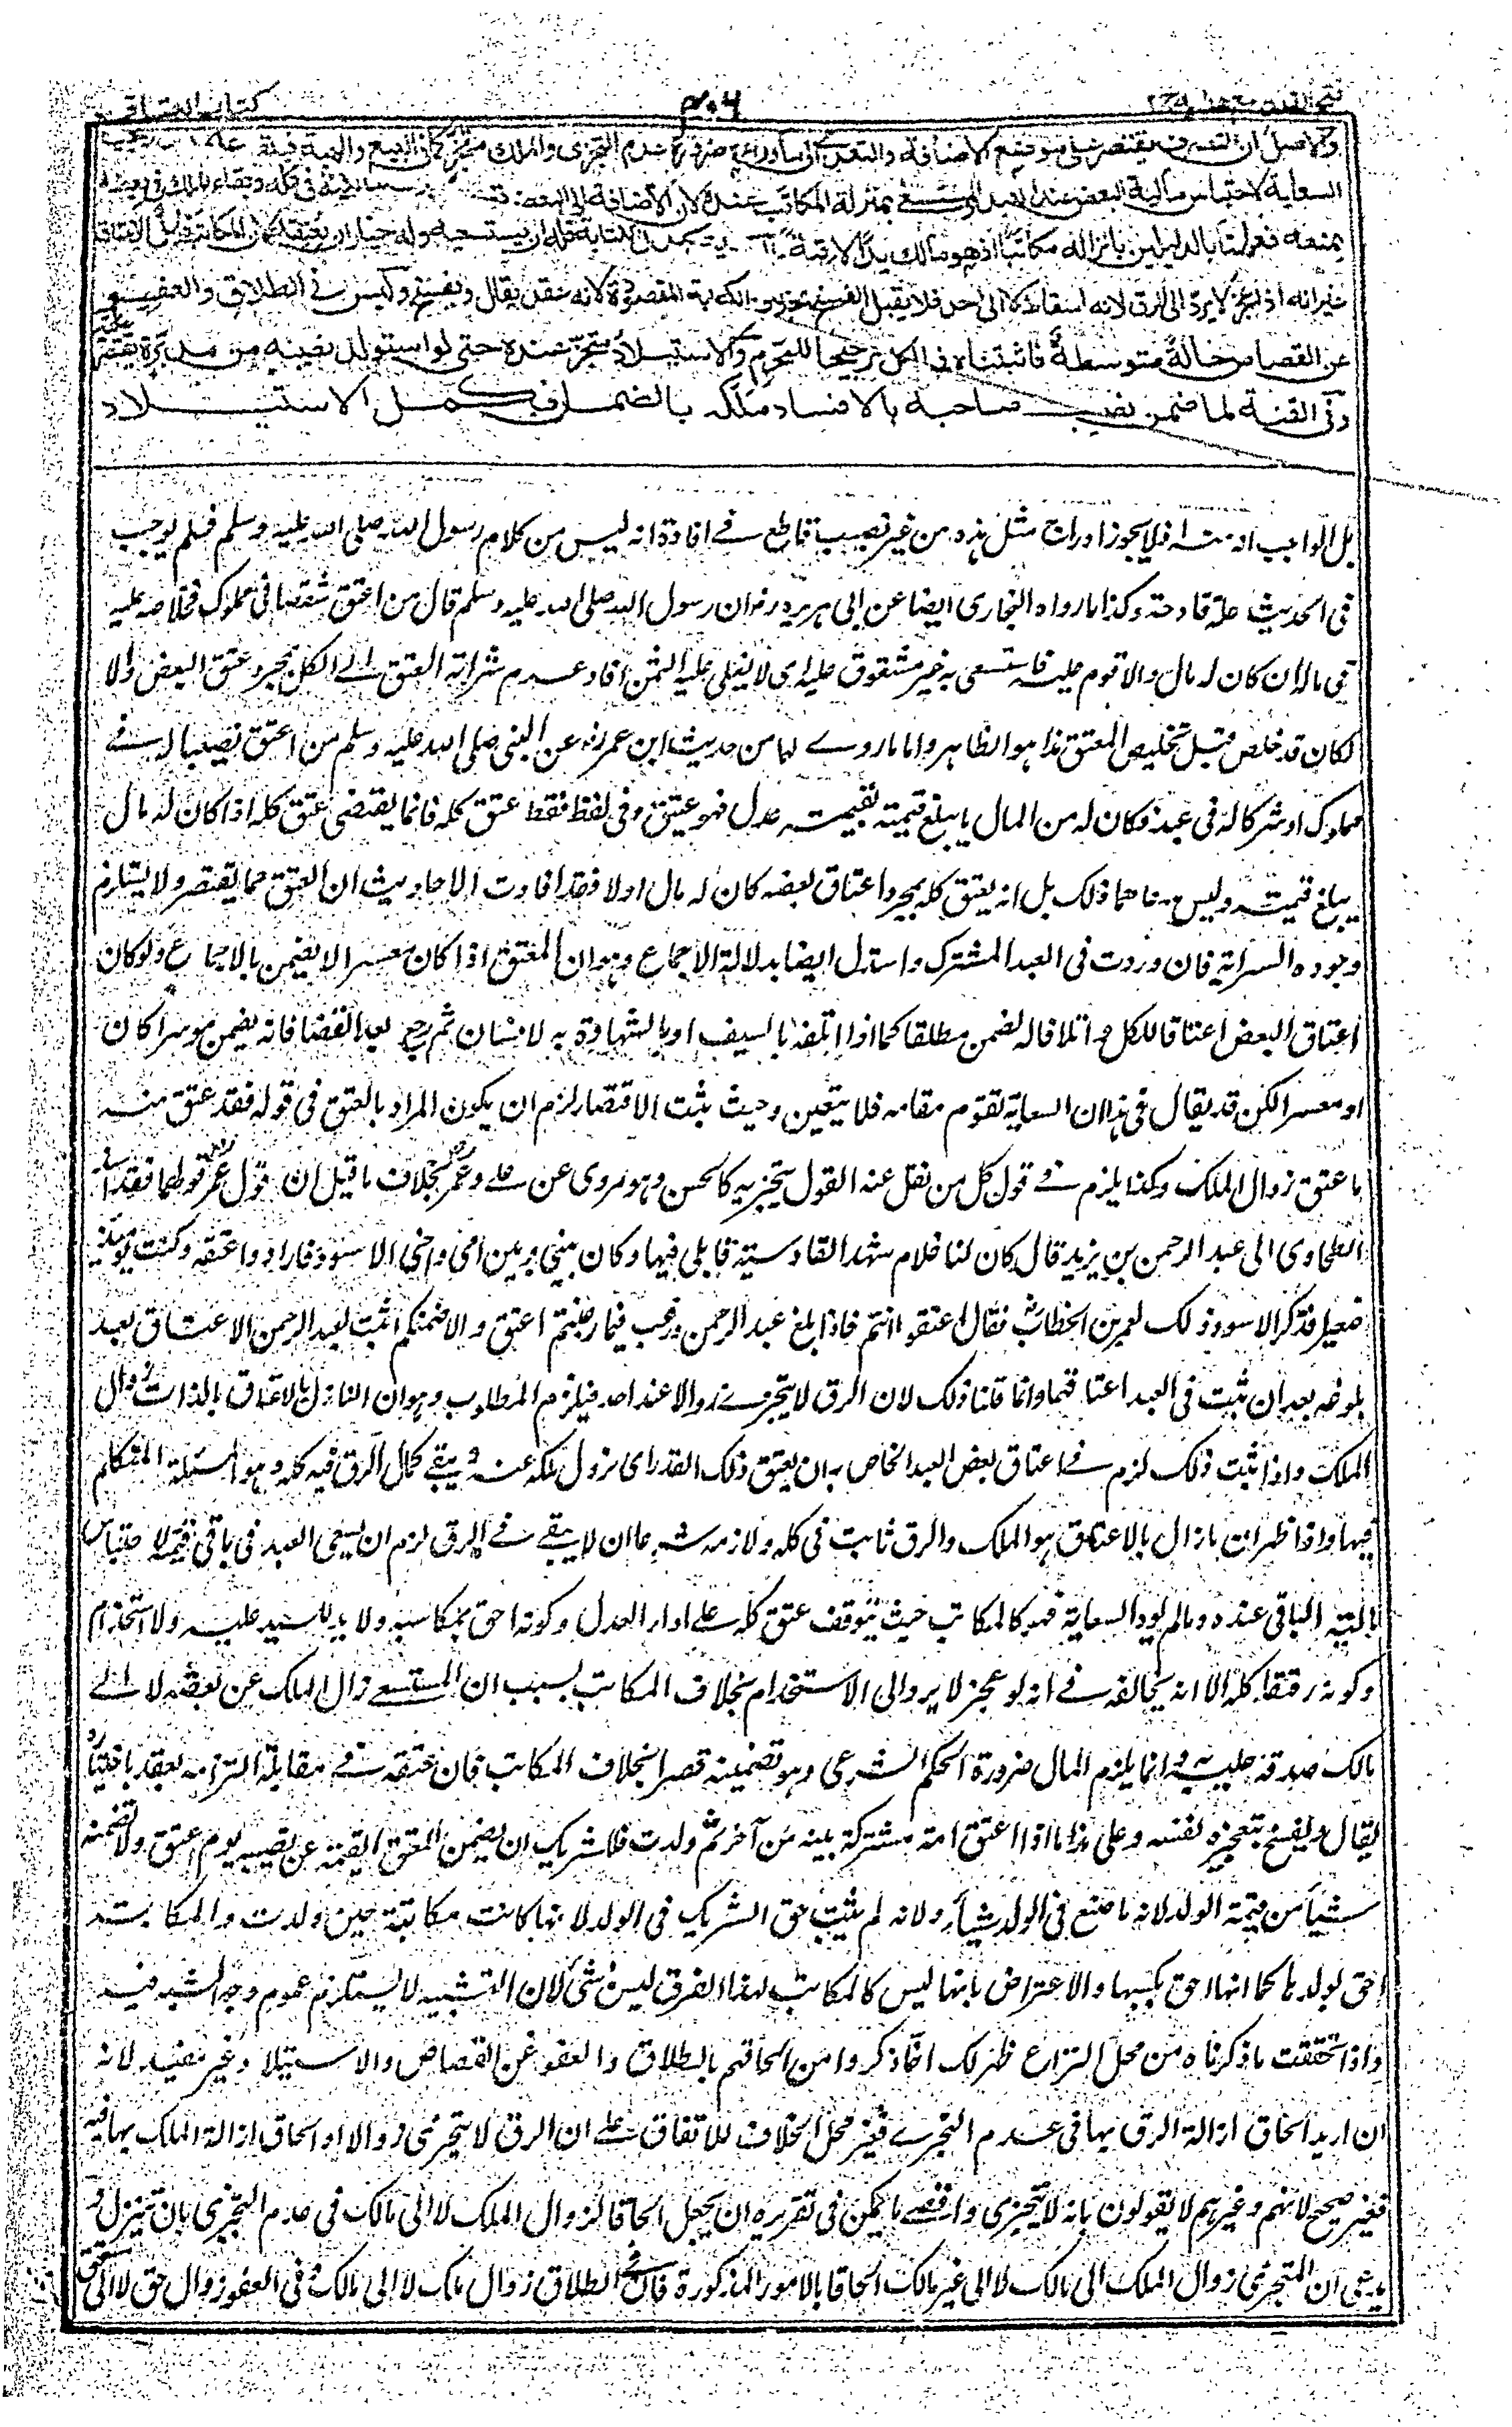 فتح القدير مع هداية ٢ج
٣٠٦
كتاب العتاق
والاصل ان التصرف يقتصر على موضع الاضافة والتعدية الى ما وراءه ضرورة عدم التجزى والملك متجز كما فى البيع والهبة فبقى على
السعاية لاحتباس مالية البعض عند العبد والمستسعى بمنزلة المكاتب عنده لان الاضافة الى البعض المالكية فى كله وبقاء الملك فى بعضه
يمنعه فعملنا بالدليلين بانزاله مكاتبا اذ هو مالك يدا لا رقبة والسعاية كبدل الكتابة فله ان يستسعيه وله خيار ان يعتقه لان المكاتب قابل للعتاق
غير انه اذا عجز لا يرد الى الرق لانه اسقاط لا الى احد فلا يقبل الفسخ بخلاف الكتابة المقصودة لانه عقد يقال ويفسخ وليس فى الطلاق والعفو
عن القصاص حالة متوسطة فاثبتناه فى الكل ترجيحا للمحرم والاستيلاد متجز عنده حتى لو استولد نصيبه من مدبرة يقتصر عليه
وفى القنة لما ضمن نصيب صاحبه بالافساد ملكه بالضمان فكمل الاستيلاد
بل الواجب انه منه فلا يجوز ادراج مثل هذه من غير نصب قاطع فى افادة انه ليس من كلام رسول الله صلى الله عليه وسلم فلم يوجب
فى الحديث علة قادحة وكذا ما رواه البخارى ايضا عن ابى هريرة رضه ان رسول الله صلى الله عليه وسلم قال من اعتق شقصا فى مملوك فخلاصه عليه
فى ماله ان كان له مال والا قوم عليه فاستسعى به غير مشقوق عليه اى لا يغلى عليه الثمن افاد عدم سراية العتق الى الكل بمجرد عتق البعض والا
لكان قد خلص قبل تخليص المعتق هذا هو الظاهر واما ما روى لهما من حديث ابن عمر رضه عن النبى صلى الله عليه وسلم من اعتق نصيبا له فى
مملوك او شركا له فى عبد فكان له من المال ما يبلغ قيمته بقيمة عدل فهو عتيق وفى لفظ فقط عتق كله فانما يقتضى عتق كله اذا كان له مال
يبلغ قيمته وليس مدعاهما ذلك بل انه يعتق كله بمجرد اعتاق بعضه كان له مال اولا فقد افادت الاحاديث ان العتق مما يقتصر ولا يستلزم
وجوده السراية فان وردت فى العبد المشترك واستدل ايضا بدلالة الاجماع وهو ان المعتق اذا كان معسرا لا يضمن بالاجماع ولو كان
اعتاق البعض اعتاقا للكل واتلافا له لضمن مطلقا كما اذا اتلفه بالسيف او بالشهادة به لانسان ثم رجع بعد القضا فانه يضمن موسرا كان
او معسرا لكن قد يقال فى هذا ان السعاية تقوم مقامه فلا يتعين وحيث ثبت الاقتصار لزم ان يكون المراد بالعتق فى قوله فقد عتق منه
ما عتق زوال الملك وكذا يلزم فى قول كل من نقل عنه القول بتجزيه كالحسن وهو مروى عن على وعمر رضه بخلاف ما قيل ان قول عمر رضه كقولهما فقد اسند
الطحاوى الى عبد الرحمن بن يزيد قال كان لنا غلام شهد القادسية فابلى فيها وكان بينى وبين امى واخى الاسود فارادوا عتقه وكنت يومئذ
صغيرا فذكر الاسود ذلك لعمر بن الخطاب رضه فقال اعتقوا انتم فاذا بلغ عبد الرحمن ورغب فيما رغبتم اعتق والا ضمنكم اثبت لعبد الرحمن الاعتاق بعد
بلوغه بعد ان ثبت فى العبد اعتاقهما وانما قلنا ذلك لان الرق لا يتجزى زوالا عند احد فيلزم المطلوب وهو ان النازل بالاعتاق بالذات زوال
الملك واذا ثبت ذلك لزم فى اعتاق بعض العبد الخاص به ان يعتق ذلك القدر اى يزول ملكه عنه ويبقى كمال الرق فيه كله وهو المسئلة المتكلم
فيها واذا ظهر ان ما زال بالاعتاق هو الملك والرق ثابت فى كله ولازمه شرعا ان لا يبقى فى الرق لزم ان يسعى العبد فى باقى قيمته لاحتباس
مالية الباقى عنده وما لم يود السعاية فهو كالمكاتب حيث يتوقف عتق كله على اداء البدل وكونه احق بمكاسبه ولا يد للسيد عليه ولا استخدام
وكونه رقيقا كله الا انه يخالفه فى انه لو عجز لا يرد الى الاستخدام بخلاف المكاتب بسبب ان المستسعى زال الملك عن بعضه لا الى
مالك صدقة عليه به وانما يلزم المال ضرورة الحكم الشرعى وهو تضمينه قصرا بخلاف المكاتب فان عتقه فى مقابلة التزامه بعقد باختياره
يقال ويفسخ بتعجيزه نفسه وعلى هذا ما اذا اعتق امة مشتركة بينه من آخر ثم ولدت فللشريك ان يضمن المعتق القيمة عن نصيبه يوم اعتق ولا تضمينه
شيأ من قيمة الولد لانه ما صنع فى الولد شيأ ولانه لم يثبت حق الشريك فى الولد لانها كانت مكاتبة حين ولدت والمكاتبة
احق بولدها كما انها احق بكسبها والاعتراض بانها ليس كالمكاتب لهذا الفرق ليس بشئ لان التشبيه لا يستلزم عموم وجه الشبه فيه
واذا تحققت ما ذكرناه من محل النزاع ظهر لك ان ما ذكروا من الحاقهم بالطلاق والعفو عن القصاص والاستيلاد غير مفيد لانه
ان اريد الحاق ازالة الرق بها فى عدم التجزى فغير محل الخلاف للاتفاق على ان الرق لا يتجزى زوالا او الحاق ازالة الملك بها فيه
فغير صحيح لانهم وغيرهم لا يقولون بانه لا يتجزى واقصى ما يمكن فى تقريره ان يجعل الحاقا لزوال الملك لا الى مالك فى عدم التجزى بان تنزل و
يدعى ان المتجزى زوال الملك الى مالك لا الى غير مالك الحاقا بالامور المذكورة فان فى الطلاق زوال ملك لا الى مالك وفى العفو زوال حق لا الى مستحق